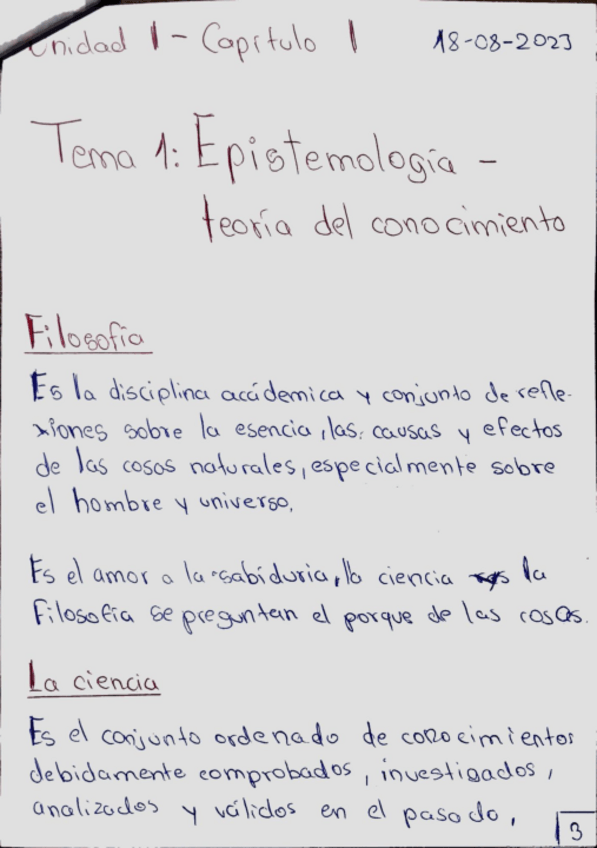 Unidad 1 - Capítulo 1 18-08-2023
Tema 1: Epistemología -
teoría del conocimiento
Filosofía
Es la disciplina acádemica y conjunto de refle-
xiones sobre la esencia, las. causas y efectos
de las cosas naturales, especialmente sobre
el hombre y universo.
Es el amor a la sabiduria, la ciencia la
Filosofía se preguntan el porque de las cosas.
La ciencia
Es el conjunto ordenado de conocimientos
debidamente comprobados, investigados,
analizados y válidos en el pasado,
3